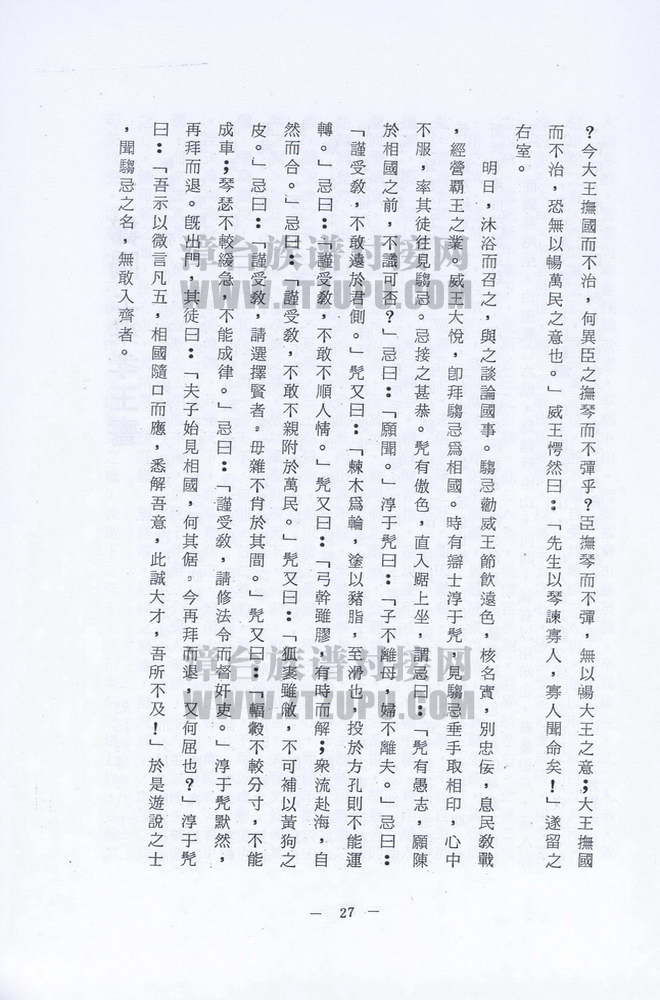 ？今大王撫國而不治，何異臣之撫琴而不彈乎？臣撫琴而不彈，無以暢大王之意；大王撫國
而不治，恐無以暢萬民之意也。」威王愕然曰：「先生以琴諫寡人，寡人聞命矣！」遂留之
右室。
明日，沐浴而召之，與之談論國事。騶忌勸威王節飲遠色，核名實，別忠佞，息民教戰
，經營霸王之業。威王大悅，卽拜騶忌爲相國。時有辯士淳于髡，見騶忌垂手取相印，心中
不服，率其徒往見騶忌。忌接之甚恭。髡有傲色，直入踞上坐，謂忌曰：「髡有愚志，願陳
於相國之前，不識可否？」忌曰：「願聞。」淳于髡曰：「子不離母，婦不離夫。」忌曰：
「謹受教，不敢遠於君側。」髡又曰：「棘木爲輪，塗以豬脂，至滑也，投於方孔則不能運
轉。」忌曰：「謹受教，不敢不順人情。」髡又曰：「弓幹雖膠，有時而解；衆流赴海，自
然而合。」忌曰：「謹受教，不敢不親附於萬民。」髡又曰：「狐裘雖敝，不可補以黃狗之
皮。」忌曰：「謹受教，請選擇賢者，毋雜不肖於其間。」髡又曰：「輻轂不較分寸，不能
成車；琴瑟不較緩急，不能成律。」忌曰：「謹受教，請修法令而督奸吏。」淳于髡默然，
再拜而退。旣出門，其徒曰：「夫子始見相國，何其倨。今再拜而退，又何屈也？」淳于髡
曰：「吾示以微言凡五，相國隨口而應，悉解吾意，此誠大才，吾所不及！」於是遊說之士
，聞騶忌之名，無敢入齊者。
— 27 —
漳台族谱对接网
WWW.ZTZUPU.COM
漳台族谱对接网
WWW.ZTZUPU.COM